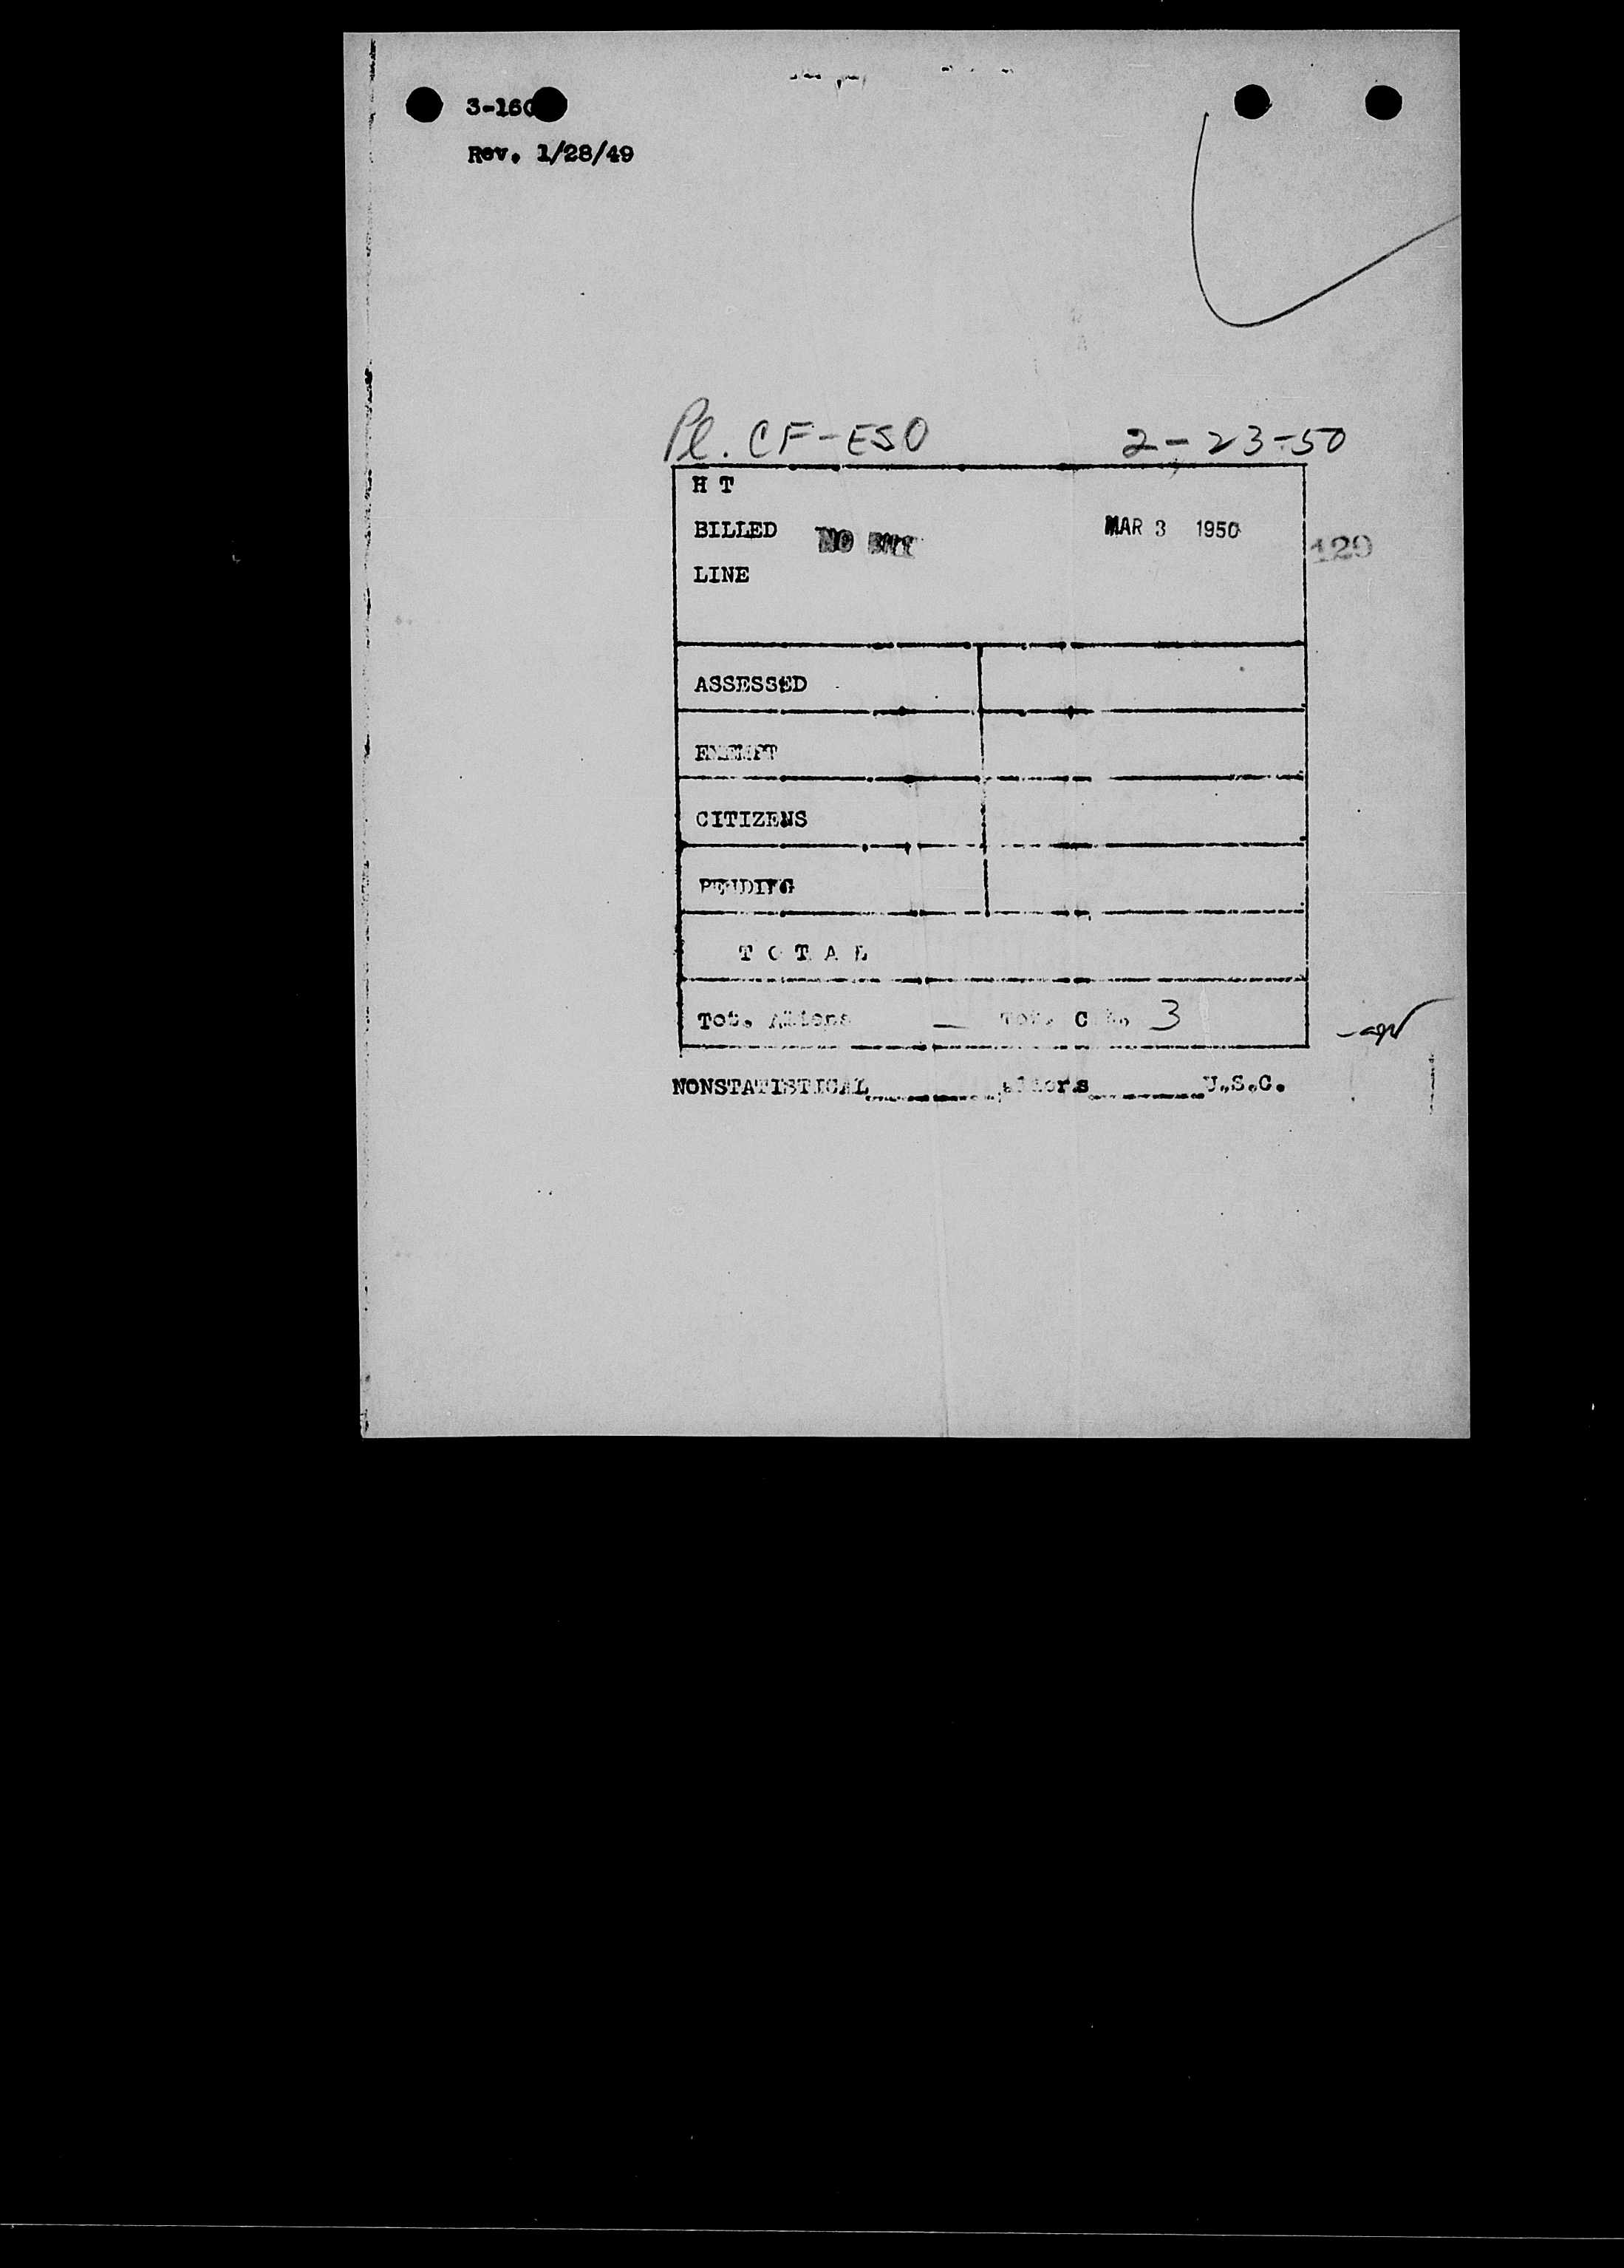 3-160
Rev. 1/28/49
Pl. CF-ESO 2-23-50
H T
BILLED NO BILL MAR 3 1950 129
LINE
ASSESSED
EXEMPT
CITIZENS
PENDING
T O T A L
Tot. Aliens — Tot. C 3
NONSTATISTICAL aliens U.S.C.